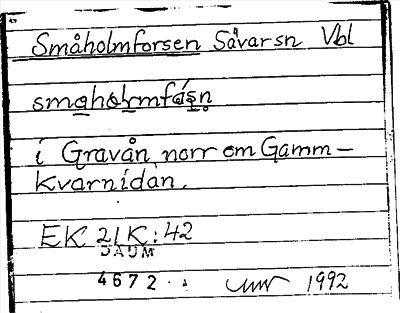 Småholmforsen Sävar sn Vbl
småholmfåsn
i Gravån, norr om Gamm-
kvarnidan.
EK 21K:42
DAUM
4672
1992